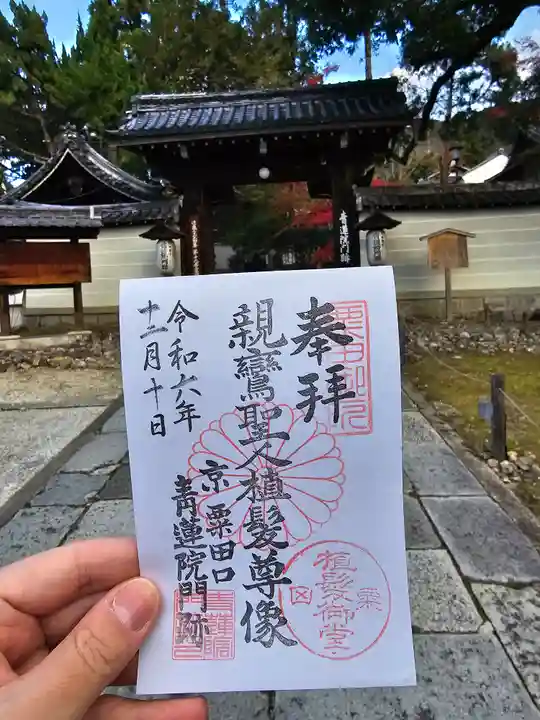 奉拝
親鸞聖人植髪尊像
京 粟田口
青蓮院門跡
令和六年
十二月十日
植髪御堂
青蓮院門跡